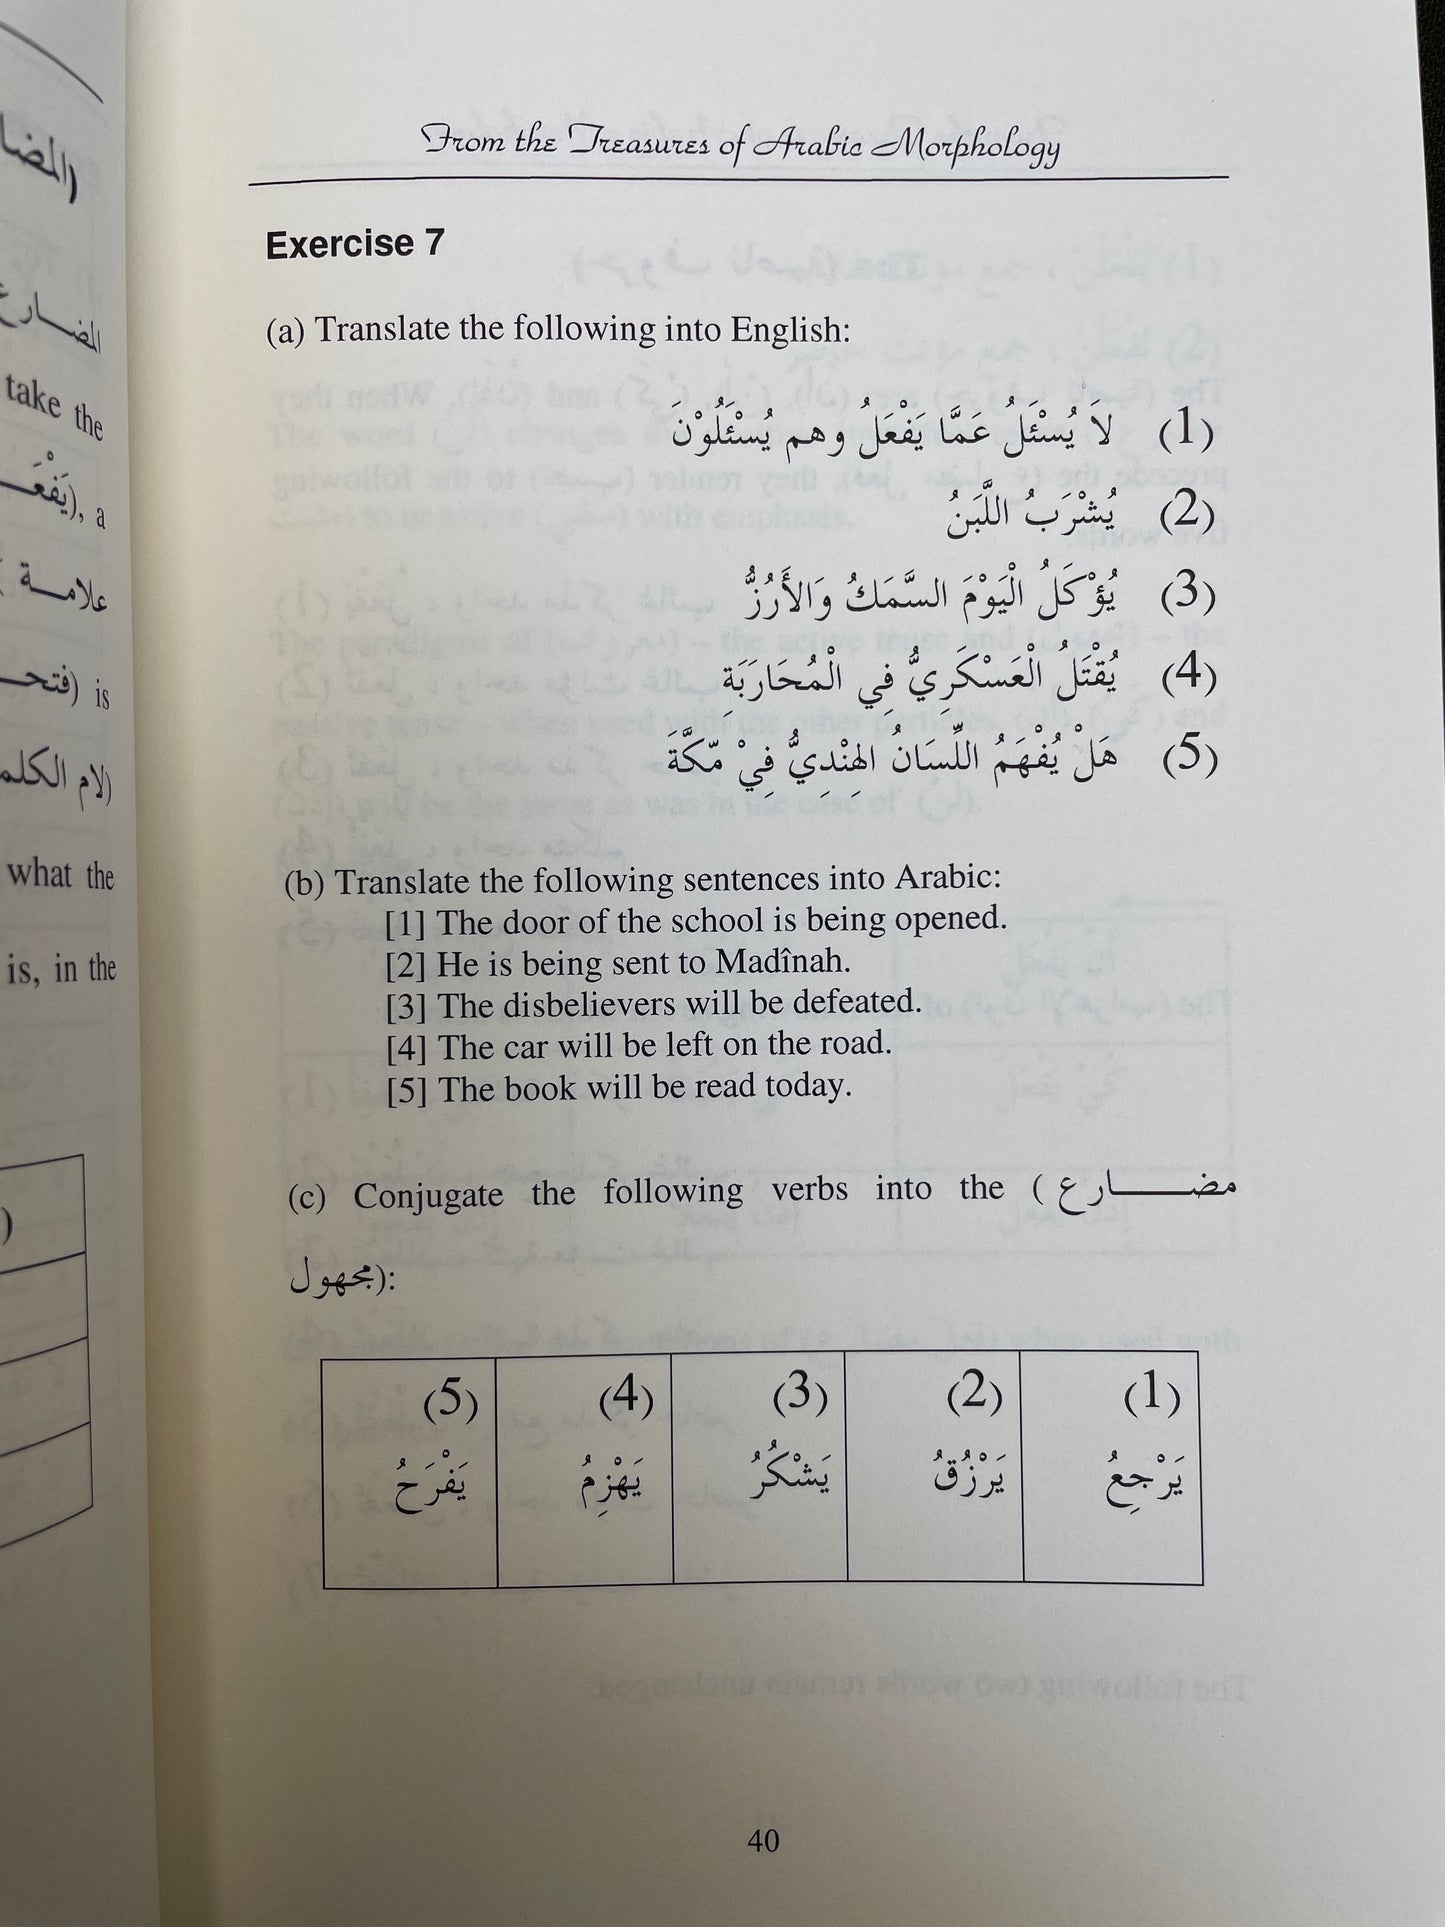 From the Treasures of Arabic Morphology
Exercise 7
(a) Translate the following into English:
(1) لاَ يُسْئَلُ عَمَّا يَفْعَلُ وهم يُسْئَلُوْنَ
(2) يُشْرَبُ اللَّبَنُ
(3) يُؤْكَلُ الْيَوْمَ السَّمَكُ وَالأَرُزُّ
(4) يُقْتَلُ الْعَسْكَرِيُّ فِي الْمُحَارَبَةِ
(5) هَلْ يُفْهَمُ اللِّسَانُ الهِنْدِيُّ فِيْ مّكَّةَ
(b) Translate the following sentences into Arabic:
[1] The door of the school is being opened.
[2] He is being sent to Madînah.
[3] The disbelievers will be defeated.
[4] The car will be left on the road.
[5] The book will be read today.
(c) Conjugate the following verbs into the (مضــــارع
مجهول):
(5) (4) (3) (2) (1)
يَرْجِعُ يَرْزُقُ يَشْكُرُ يَهْزِمُ يَفْرَحُ
40
(المضا
المضـــارع
take the
(يَفْعَـ), a
علامـــة
(فتحـ) is
(لام الكلم
what the
is, in the
)